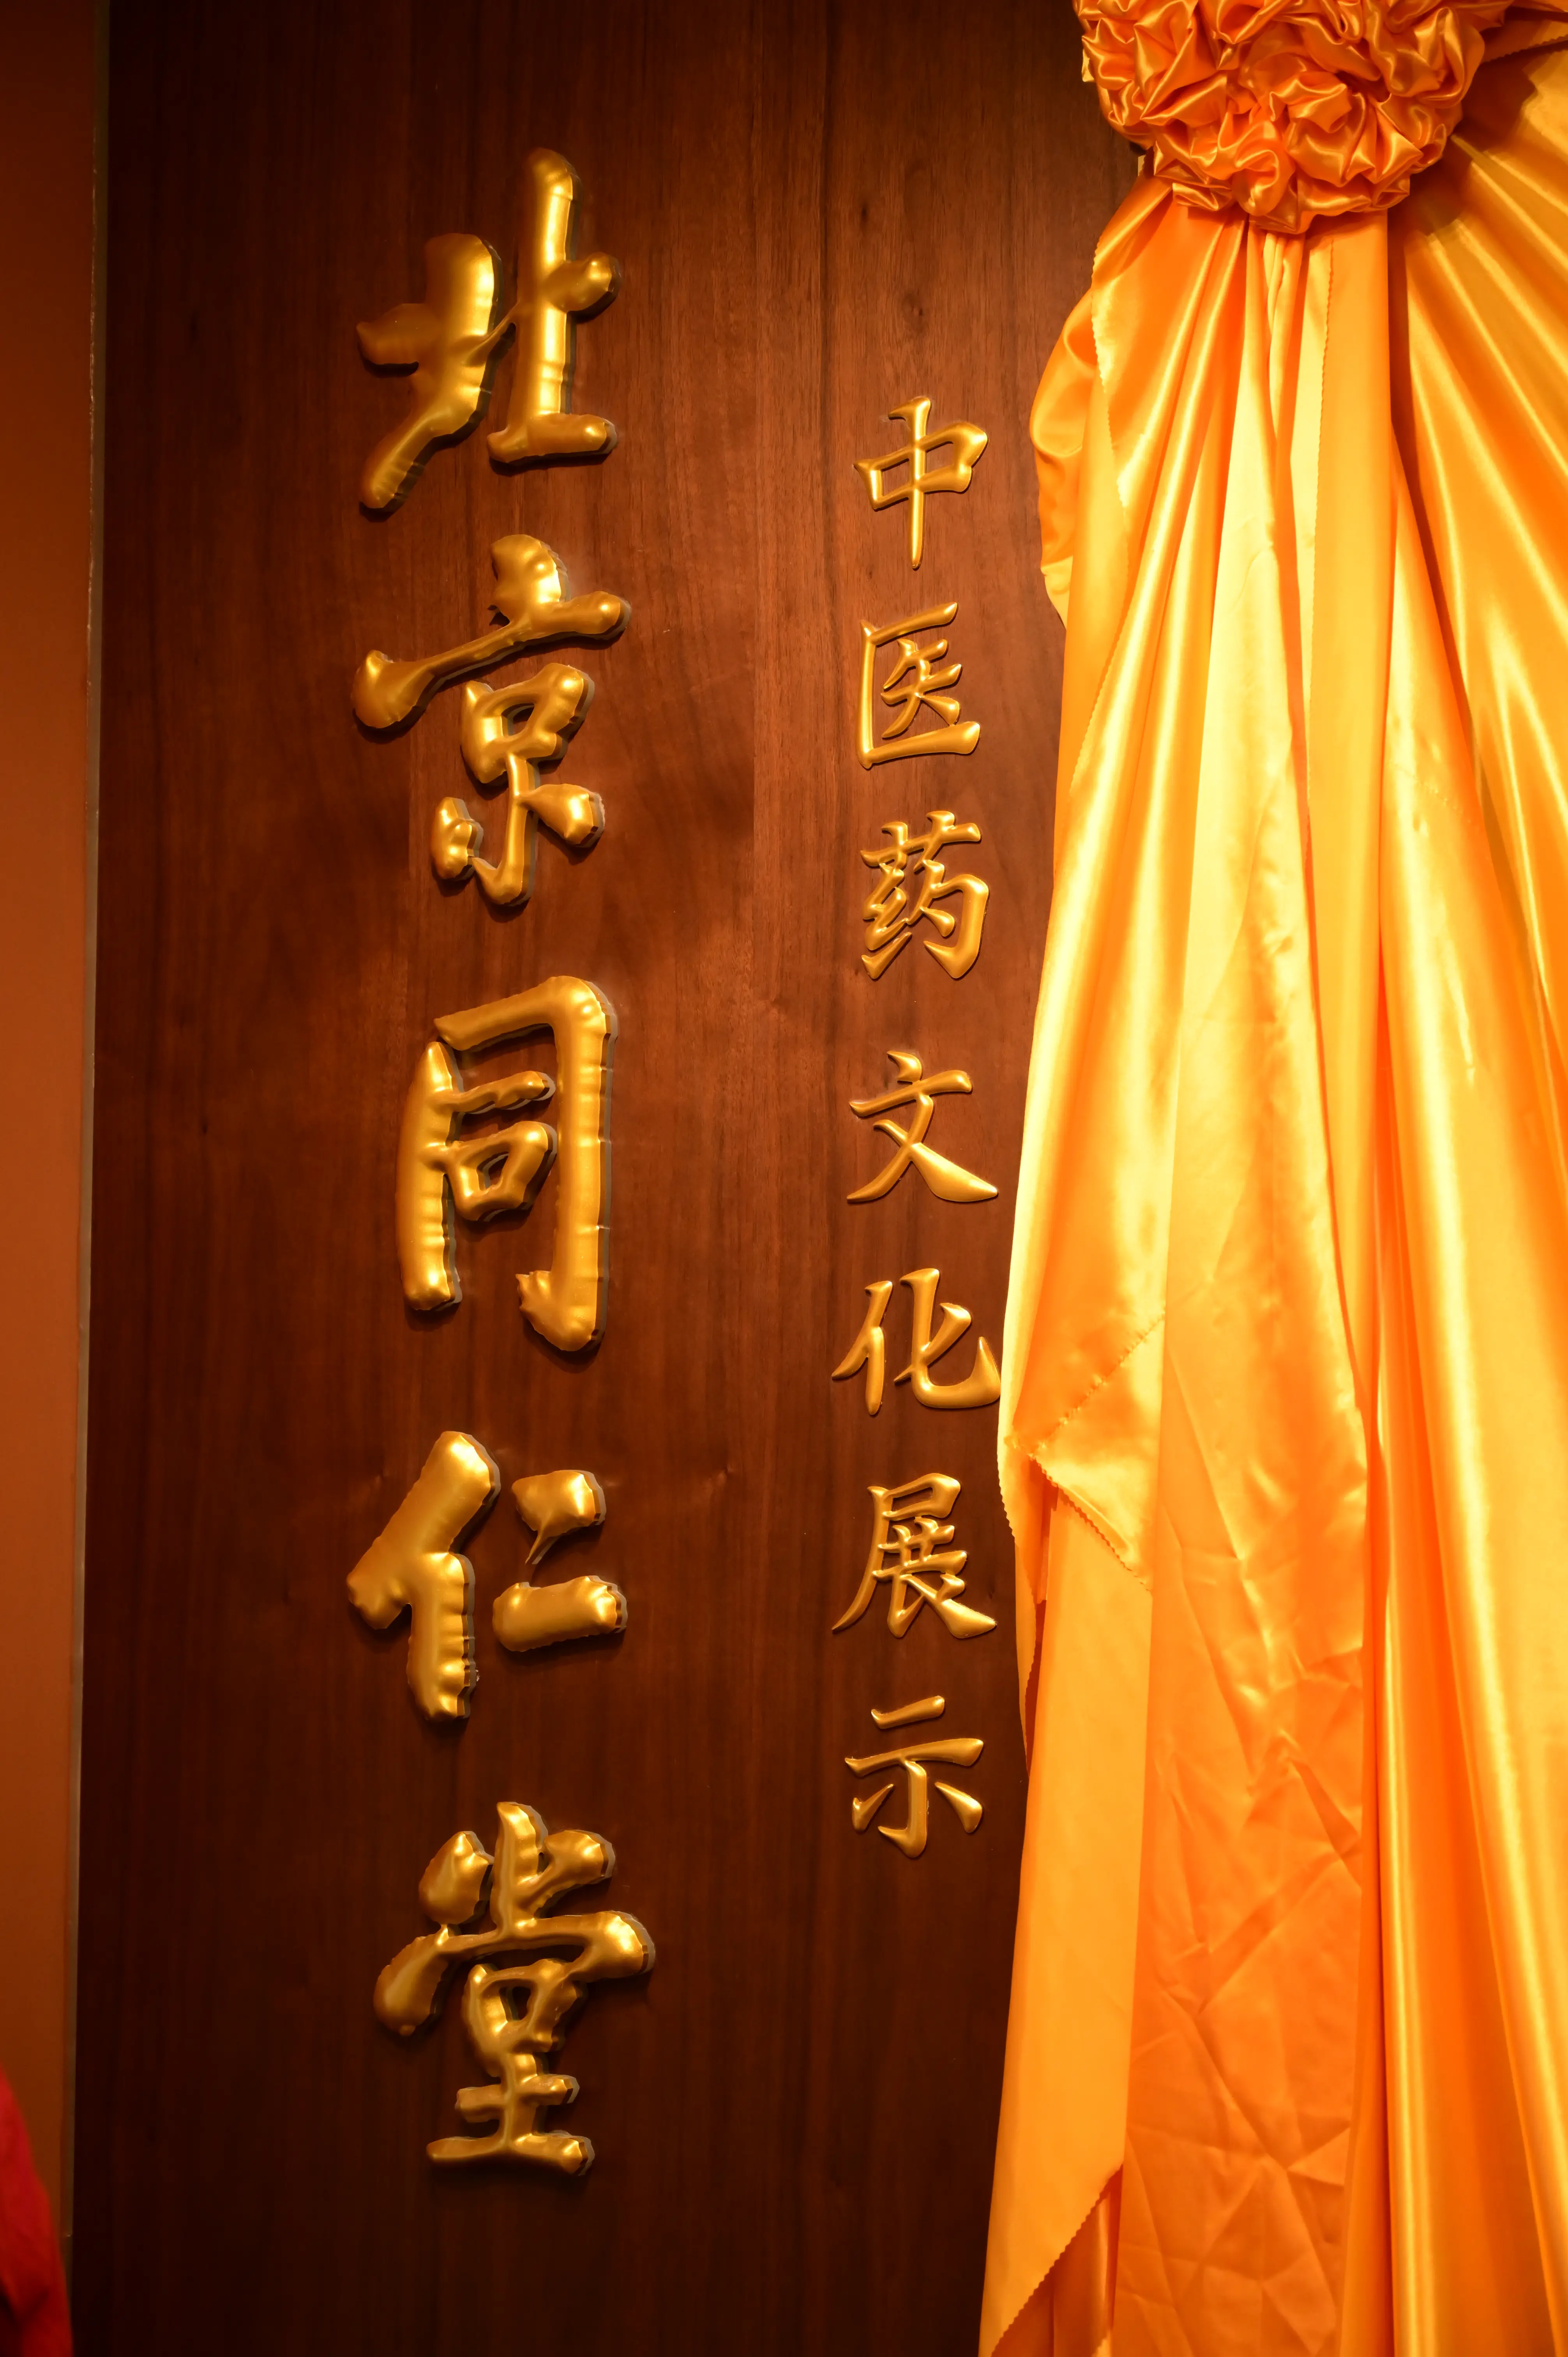 北京同仁堂
中医药文化展示